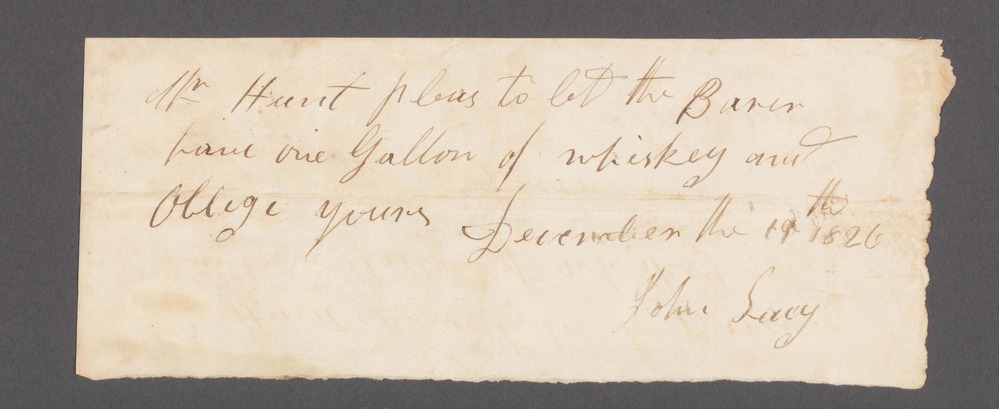 Mr Hunt pleas to let the Barer
have one Gallon of whiskey and
Oblige yours December the 19th 1826
John Lacy